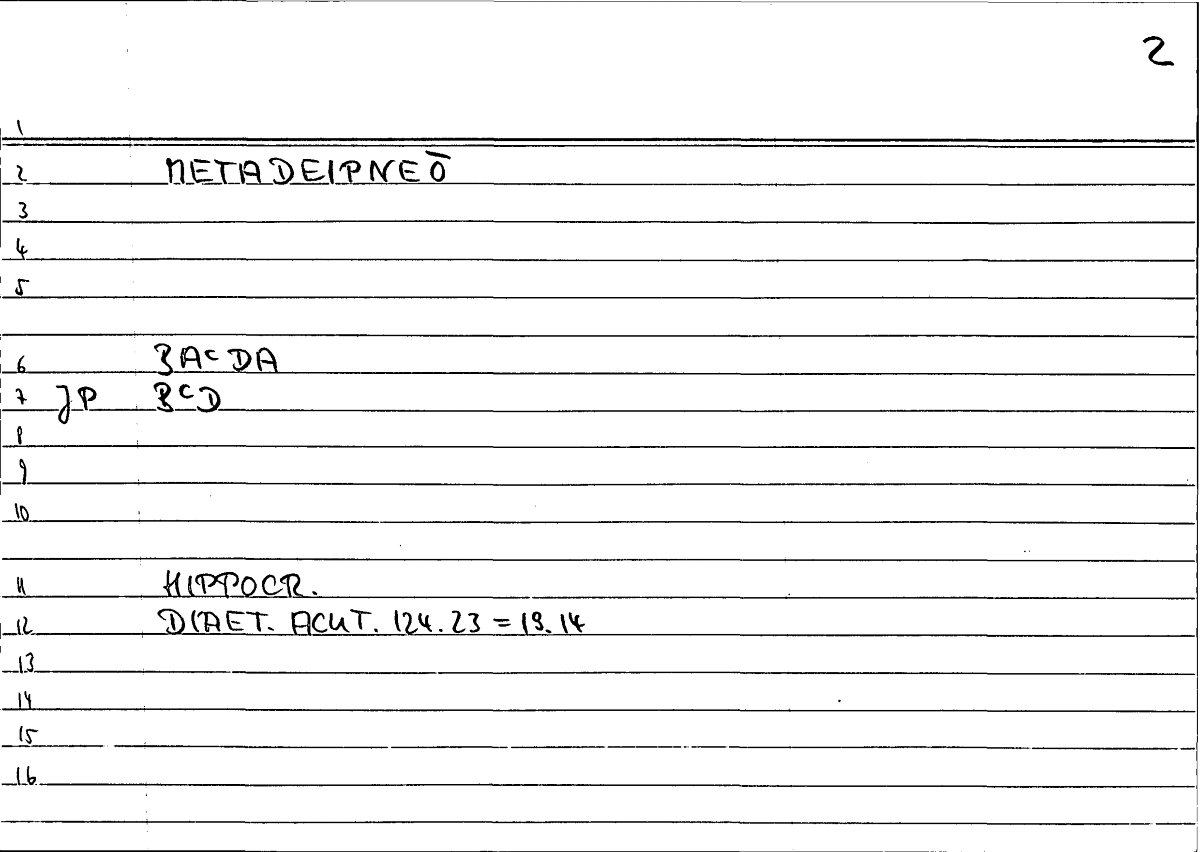 2
1
2 METADEIPNEŌ
3
4
5
6 BACDA
7 JP BCD
8
9
10
11 HIPPOCR.
12 DIAET. ACUT. 124.23 = 19.14
13
14
15
16